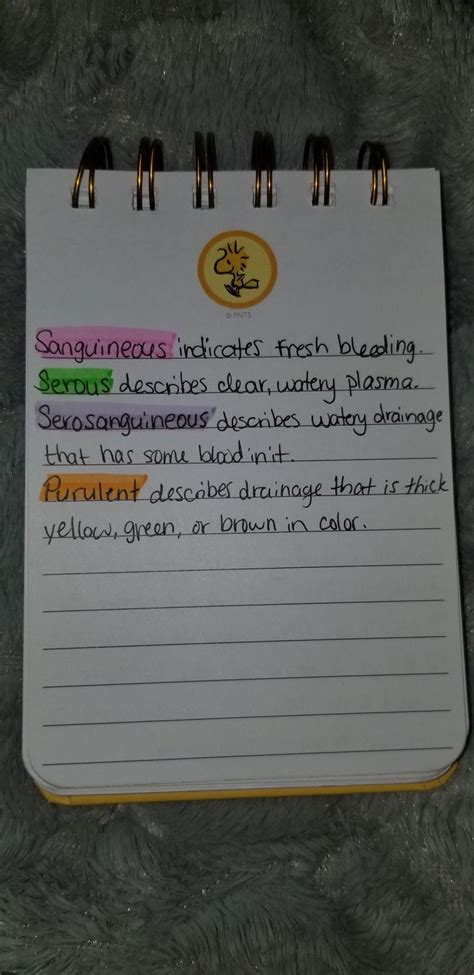 © PNTS
Sanguineous indicates fresh bleeding.
Serous describes clear, watery plasma.
Serosanguineous describes watery drainage
that has some blood in it.
Purulent describes drainage that is thick
yellow, green, or brown in color.